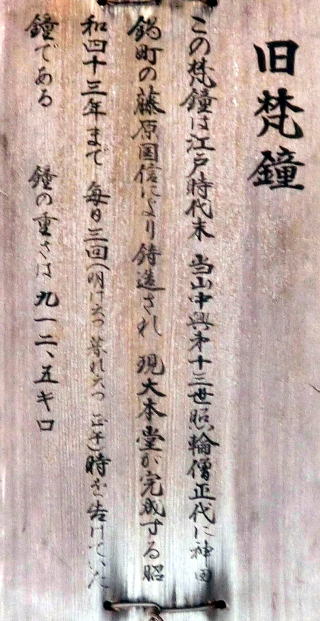 旧梵鐘
この梵鐘は江戸時代末 当山中興第十三世照輪僧正代に神田
鍋町の藤原国信により鋳造され 現大本堂が完成する昭
和四十三年まで 毎日三回(明け六つ 暮れ六つ 正午)時を告げていた
鐘である 鐘の重さは九一二、五キロ